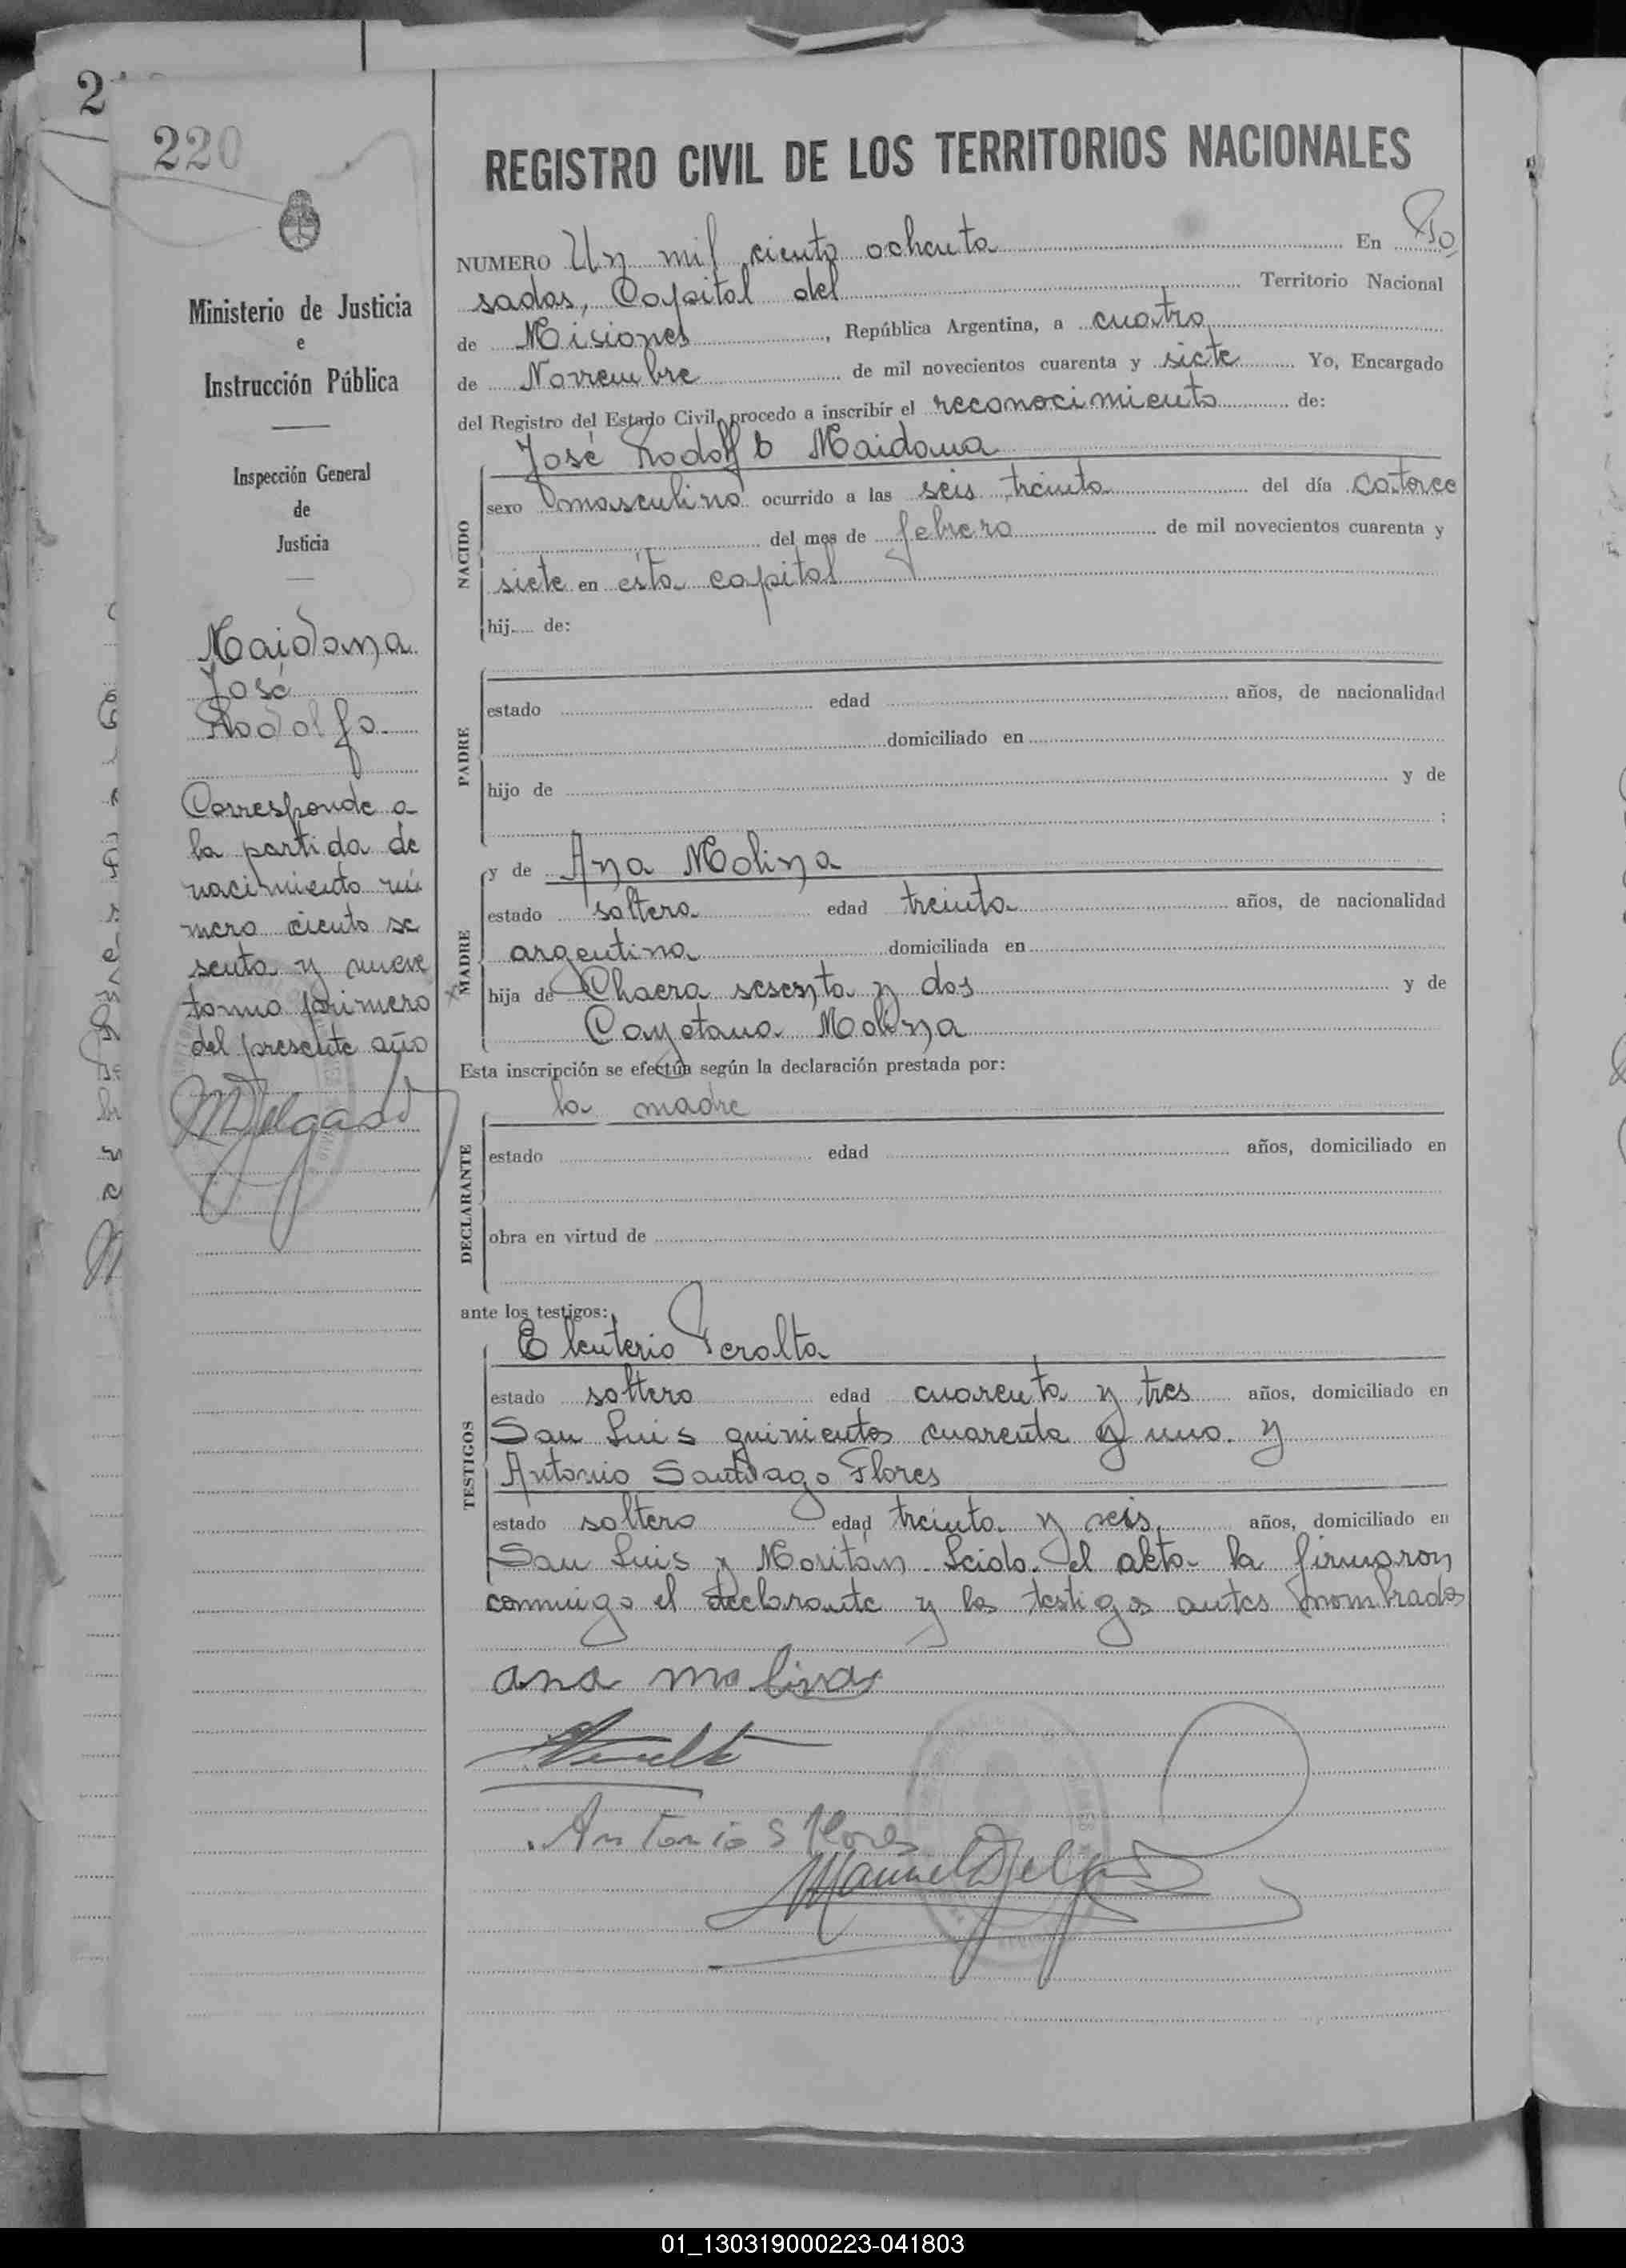 220
Ministerio de Justicia
e
Instrucción Pública
Inspección General
de
Justicia
Maidana
José
Rodolfo
Corresponde a
la partida de
nacimiento nú
mero ciento se
senta y nueve
tomo primero
del presente año
MDelgado
REGISTRO CIVIL DE LOS TERRITORIOS NACIONALES
NUMERO Un mil ciento ochenta En Po
sadas, Capital del Territorio Nacional
de Misiones, República Argentina, a cuatro
de Noviembre de mil novecientos cuarenta y siete Yo, Encargado
del Registro del Estado Civil, procedo a inscribir el reconocimiento de:
José Rodolfo Maidana
NACIDO
sexo masculino ocurrido a las seis treinta del día catorce
del mes de febrero de mil novecientos cuarenta y
siete en ésta capital
hij.... de:
PADRE
estado edad años, de nacionalidad
domiciliado en
hijo de y de
;
MADRE
y de Ana Molina
estado soltera edad treinta años, de nacionalidad
argentina domiciliada en
hija de Chacra sesenta y dos y de
Cayetana Molina
Esta inscripción se efectúa según la declaración prestada por:
la madre
DECLARANTE
estado edad años, domiciliado en
obra en virtud de
ante los testigos:
TESTIGOS
Eleuterio Peralta
estado soltero edad cuarenta y tres años, domiciliado en
San Luis quinientos cuarenta y uno. y
Antonio Santiago Flores
estado soltero edad treinta y seis años, domiciliado en
San Luis y Moritán. Leida el akta la firmaron
conmigo el declarante y los testigos antes nombrados
ana molina
Antonio S Flores
Manuel Delgado
01_130319000223-041803